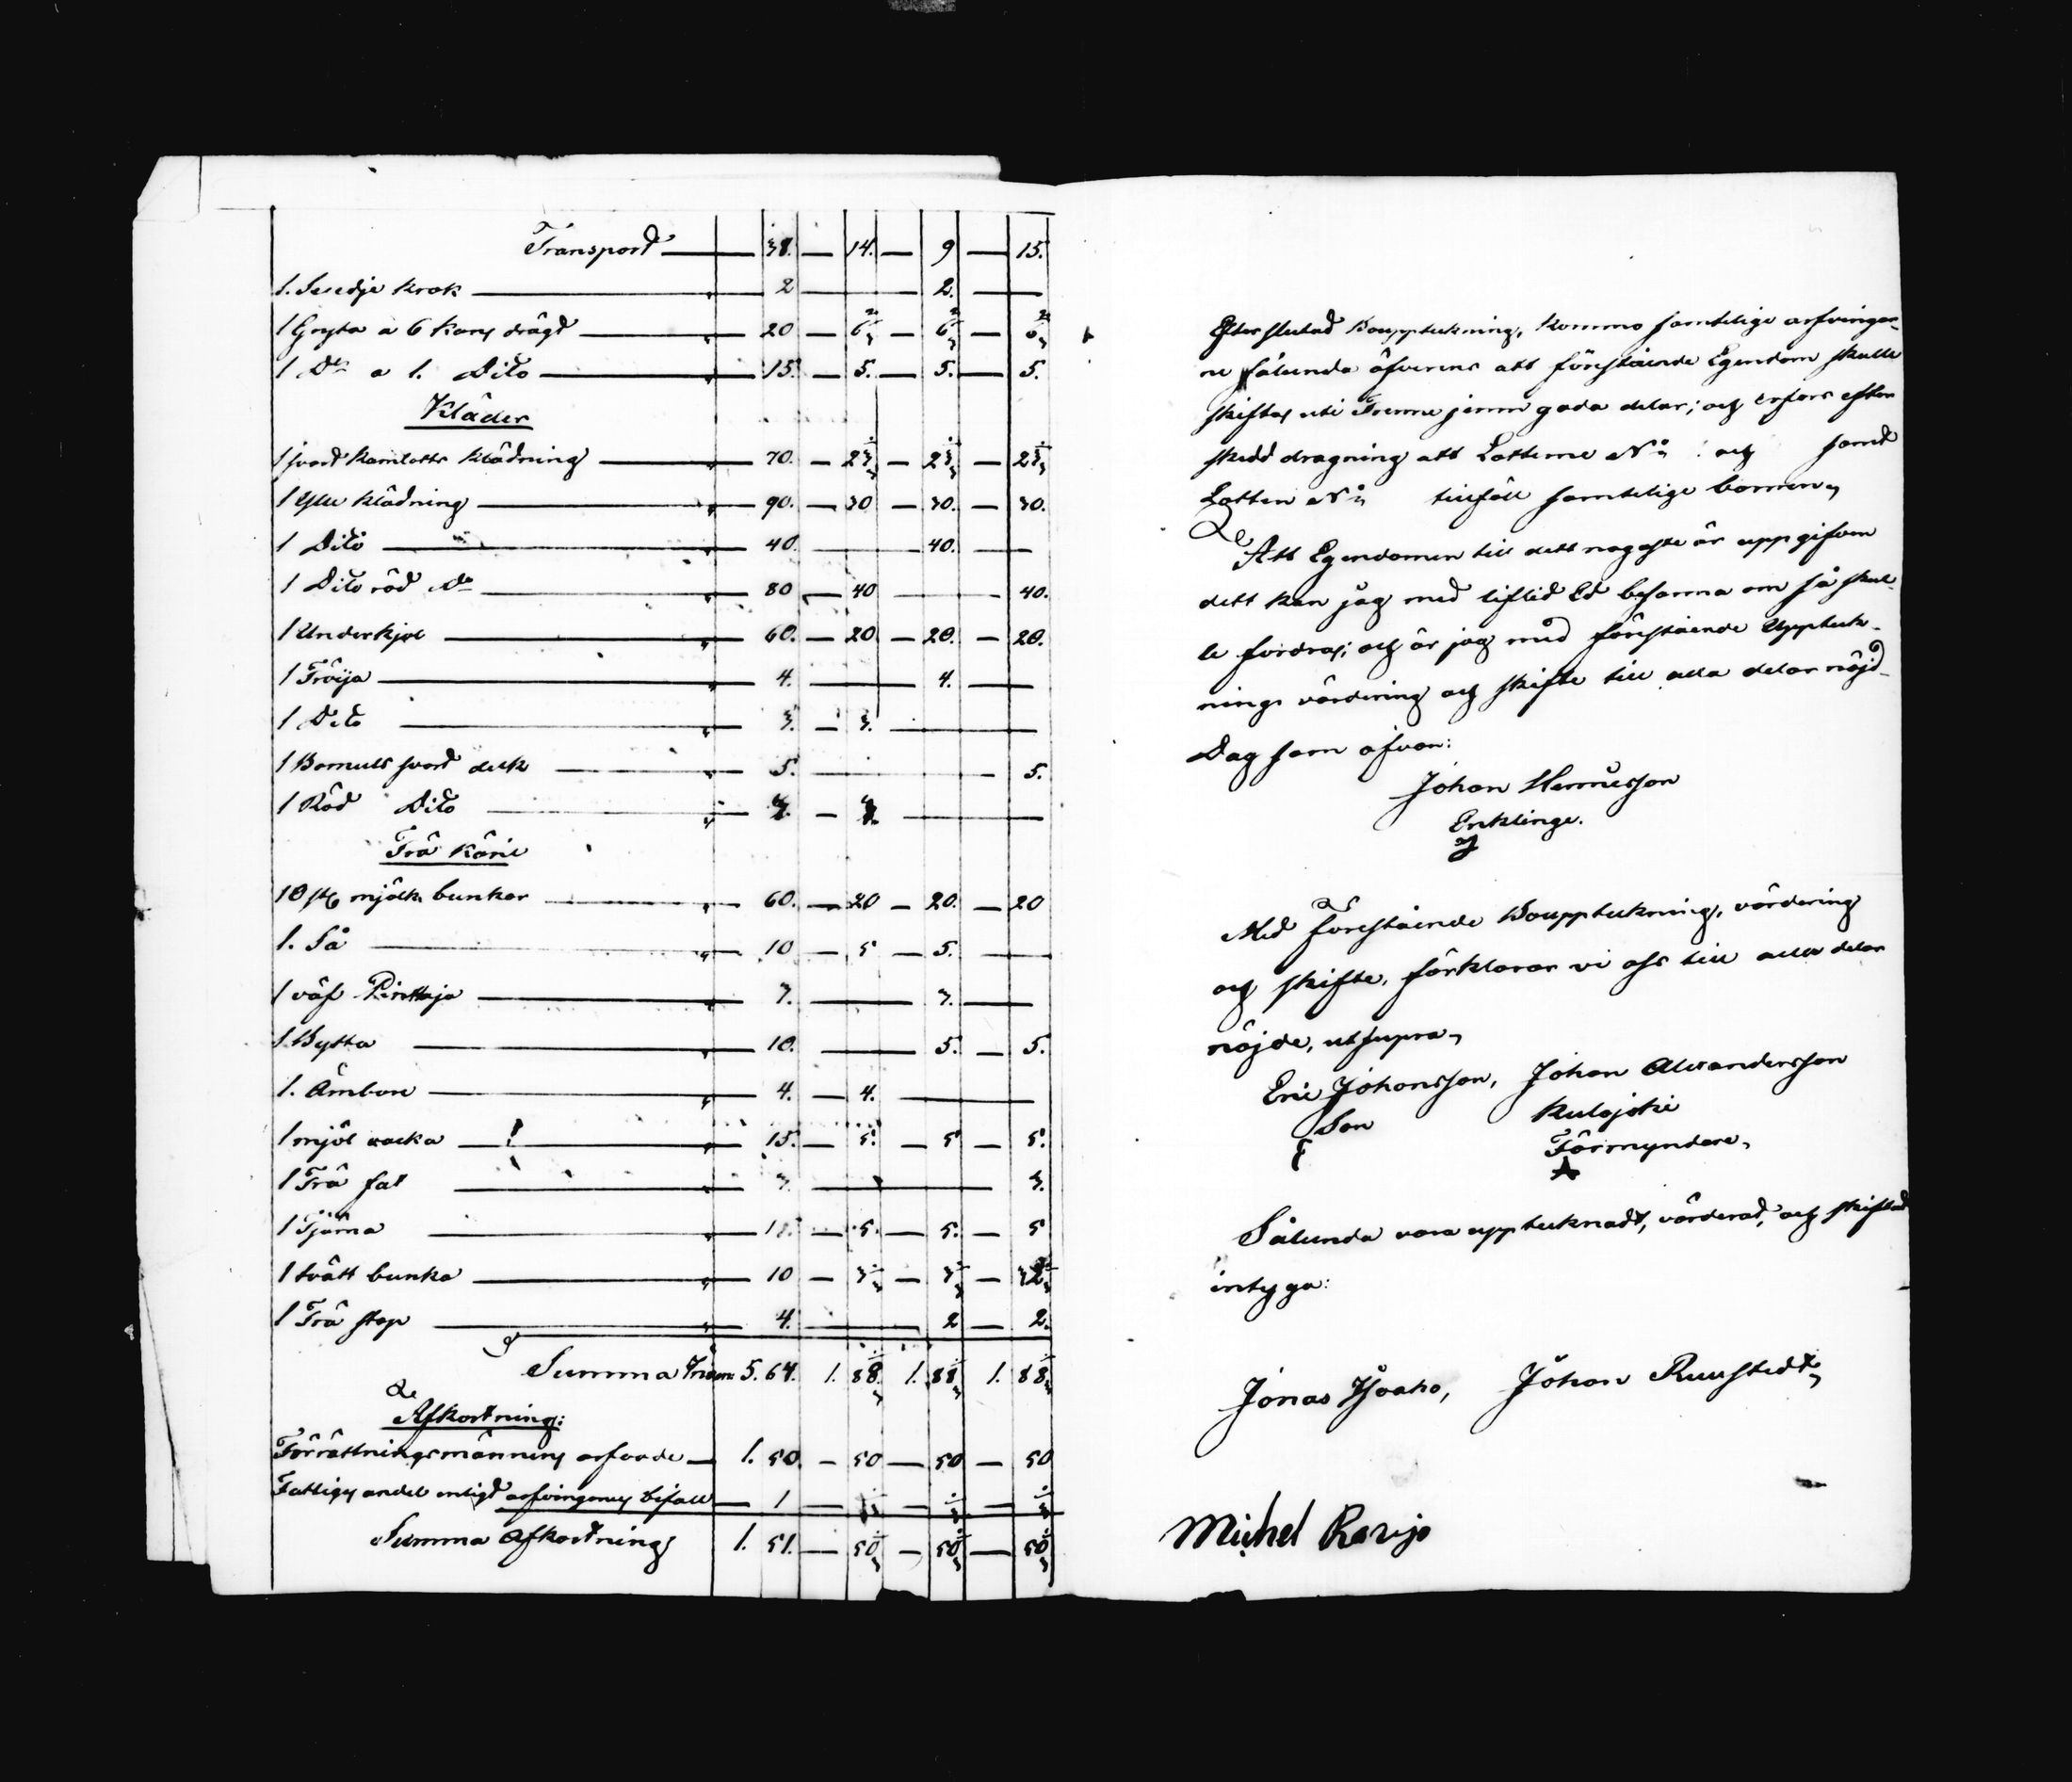 Transport — 38. — 14. — 9 — 15.
1. Svedje krok — " — 2 — 2. —
1 Gryta a 6 kans drägd — " — 20 — 6 2/3 — 6 2/3 — 6 2/3
1 Do a 1. Dito — " — 15. — 5. — 5. — 5.
Kläder
1 svart kamlotts klädning — 70. — 23 1/3 — 23 1/3 — 23 1/3
1 Ylle klädning — " — 90. — 30 — 30. — 30.
1 Dito — " — 40. — 40. —
1 Dito röd Do — " — 80 — 40 — 40.
1 Underkjol — " — 60. — 20 — 20. — 20.
1 Tröija — " — 4. — 4. —
1 Dito — " — 3. — 3. —
1 Bomuls svart duk — " — 5. — 5.
1 Röd Dito — " —
Trä Käril
10 st mjölk bunkar — " — 60. — 20 — 20. — 20
1. Så — " — 10 — 5 — 5. —
1 väf Pirttaja — " — 3. — 3. —
1. Bytta — " — 10. — 5. — 5.
1. Ämbare — " — 4. — 4. —
1 mjöl vacka — " — 15. — 5. — 5 — 5.
1 Trä fat — " — 3. — 3.
1 Tjärna — " — 15. — 5. — 5. — 5
1 tvätt bunka — " — 10 — 3 1/3 — 3 1/3 —
1 Trä stop — " — 4. — 2 — 2.
Summa 5. 64. 1. 88 1. 88 1. 88
Afkortning:
Förrättningsmännens arfvode — 1. 50. — 50 — 50 — 50
Fattigs andel enligt arfvingarnes bifall — 1 — 1/3 — 1/3 — 1/3
Summa Afkortning 1. 51. — 50 1/3 — 50 1/3 — 50 1/3
Efter slutad Bouppteckning, kommo samtelige arfvingar-
ne sålunda öfverens att förestående Egendom skulle
skiftas uti Trenne jemn goda delar; och erfors efter
skedd dragning att Lotterne No och samt
Lotten No tillföll samtelige barnen,
Att Egendomen till dett nogaste är uppgifven
dett kan jag med liflid Ed besanna om så skul-
le fordras; och är jag med förestående Uppteck-
nings värdering och skifte till alla delar nöjd
Dag som ofvan:
Johan
Enklinge.
Med förestående Bouppteckning, värdering
och skifte, förklarar vi oss till alla delar
nöjde, utsupra,
Eric Johansson, Johan Alexandersson
Son Kulojoki
Förmyndare,
Sålunda vara upptecknadt, värderad, och skiftad
intyga:
Jonas Isoaho, Johan Ruustedt,
Michel Ravijo